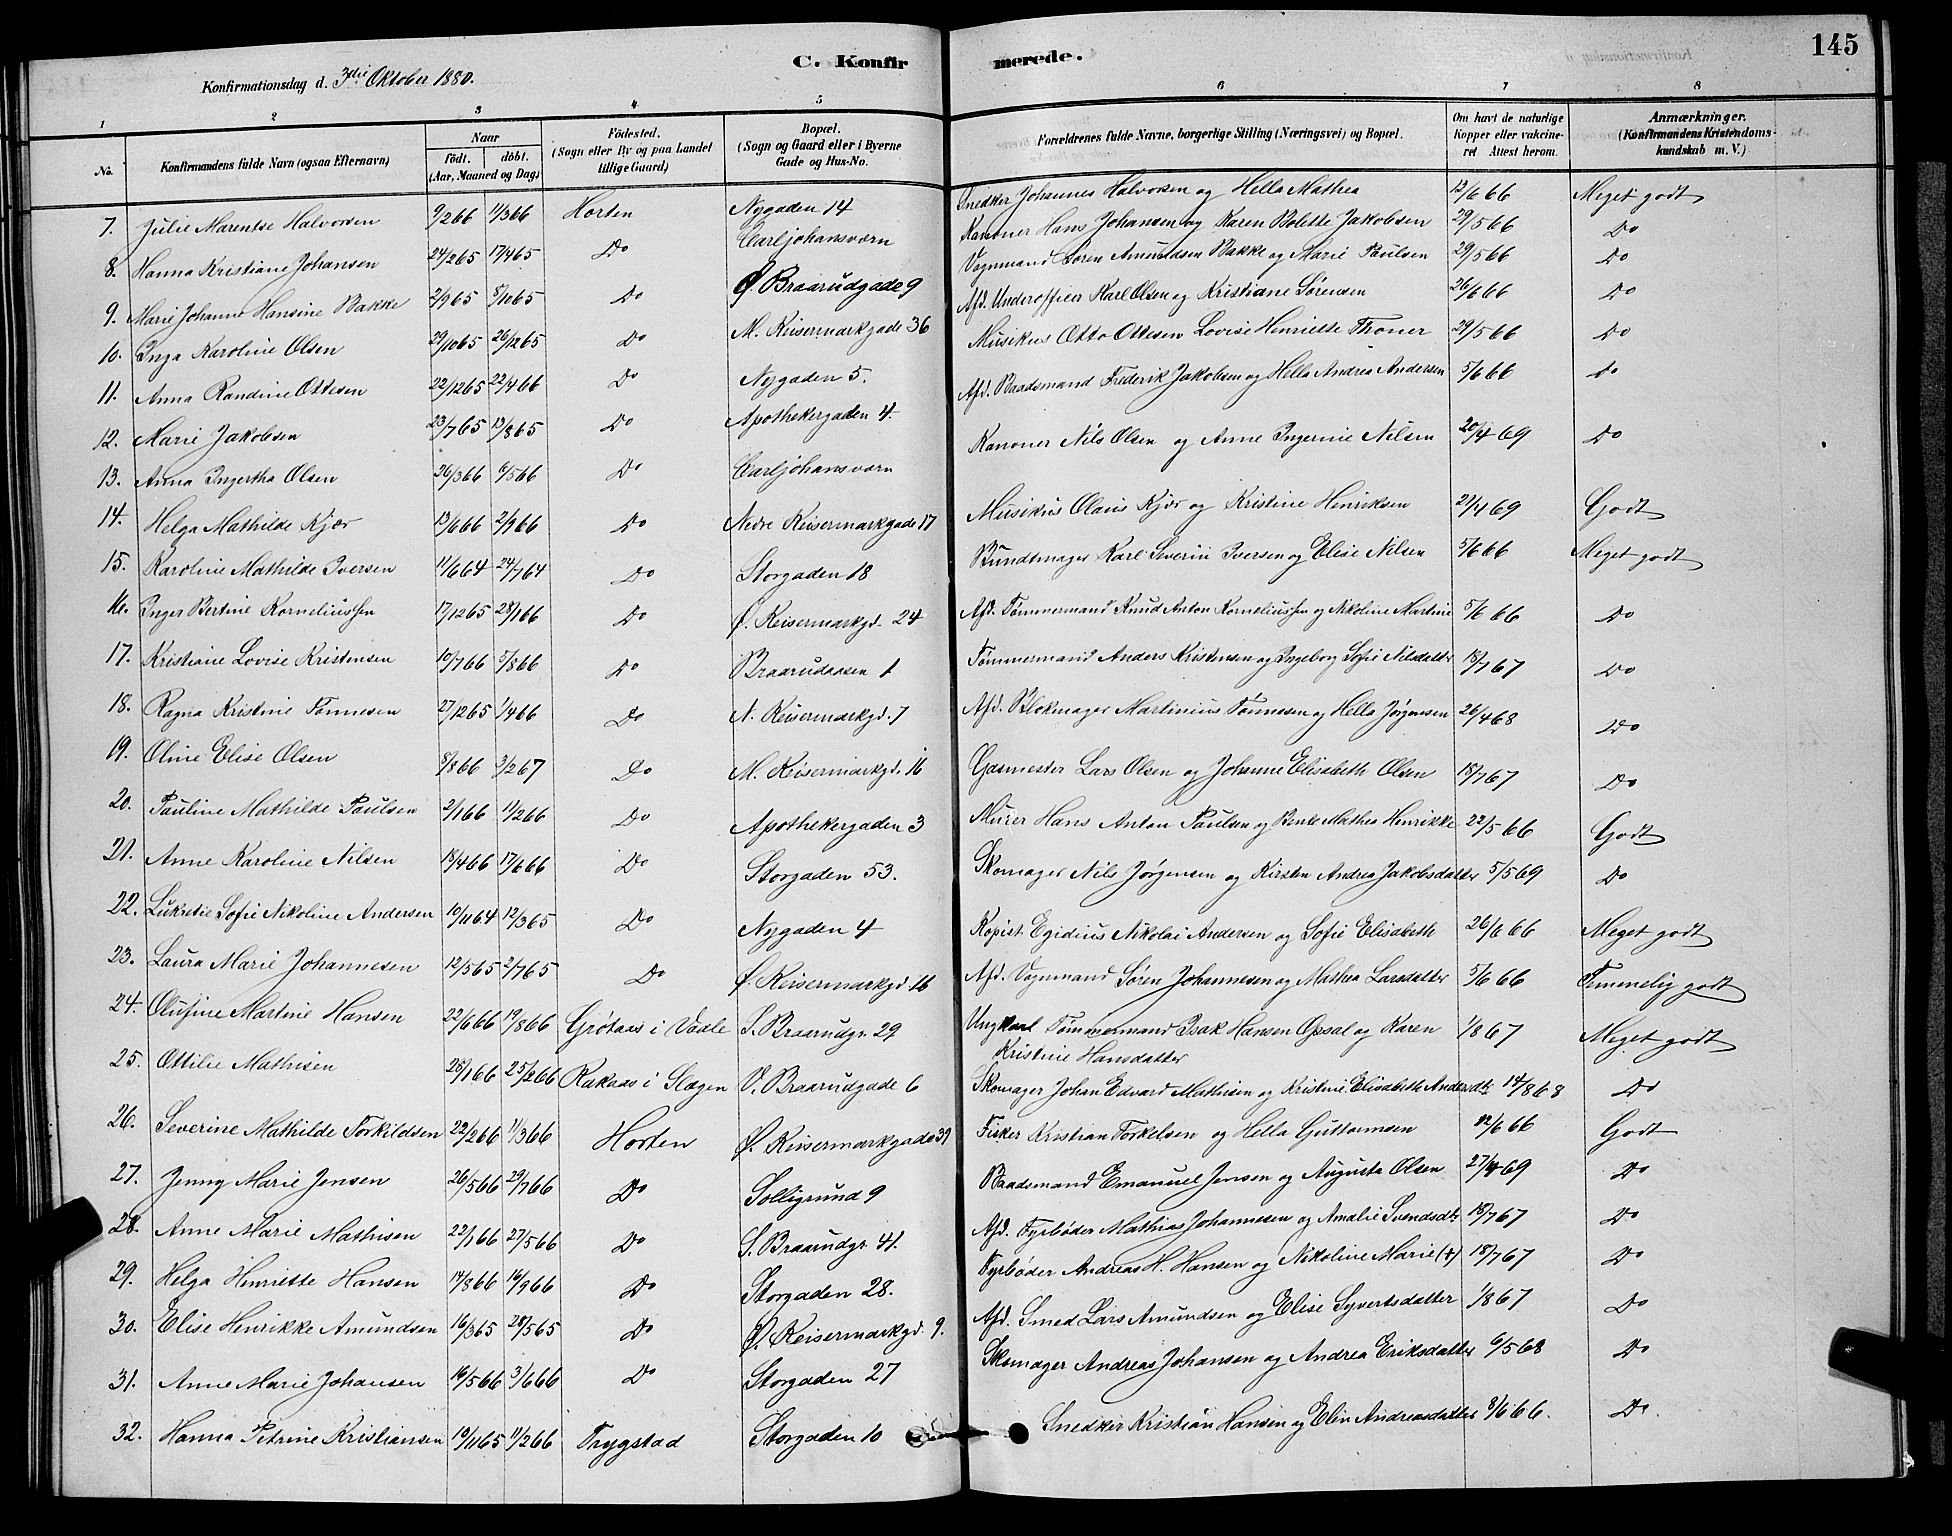 145
C. Konfirmerede.
Konfirmationsdag d. 3die Oktober 1880.
1 2 3 4 5 6 7 8
No. Konfirmandens fulde Navn (ogsaa Efternavn) Naar födt. döbt. (Aar, Maaned og Dag) Födested. (Sogn eller By og paa Landet tillige Gaard) Bopæl. (Sogn og Gaard eller i Byerne Gade og Hus-No. Forældrenes fulde Navne, borgerlige Stilling (Næringsvei) og Bopæl. Om havt de naturlige Kopper eller vakcineret Attest herom. Anmærkninger. (Konfirmandens Kristendomskundskab m. V.)
7. Julie Marentse Halvorsen 9/2 66 11/3 66 Horten Nygaden 14 Snedker Johannes Halvorsen og Hella Mathea 12/6 66 Meget godt
8. Hanna Kristiane Johansen 24/2 65 17/4 65 Do Carljohansværn Kanoner Hans Johansen og Karen Bolette Jakobsen 29/5 66 Do
9. Marie Johanne Hansine Bakke 2/9 65 8/10 65 Do Ø Braarudgade 9 Vognmand Søren Amundsen Bakke og Marie Paulsen 29/5 66 Do
10. Inga Karoline Olsen 29/10 65 26/12 65 Do M. Keisermarkgade 36 Afd. Underofficer Karl Olsen og Kristiane Sørensen 26/6 66 Do
11. Anna Randine Ottesen 22/12 65 22/4 66 Do Nygaden 5. Musikus Otto Ottesen Lovise Henriette Thoner 29/5 66 Do
12. Marie Jakobsen 23/7 65 13/8 65 Do Apothekergaden 4. Afd. Baadsmand Frederik Jakobsen og Hella Andrea Andersen 5/6 66 do
13. Anna Ingertha Olsen 26/3 66 6/5 66 Do Carljohansværn Kanoner Nils Olsen og Anne Ingerine Nilsen 20/4 69 Do
14. Helga Mathilde Kjær 13/6 66 2/9 66 Do Nedre Keisermarkgade 17 Musikus Olaus Kjær og Kristine Henriksen 21/4 69 Godt
15. Karoline Mathilde Iversen 11/6 64 24/7 64 Do Storgaden 18 Bundtmager Karl Severin Iversen og Elise Nilsen 5/6 66 Meget godt
16. Inger Bertine Kornelius͡sen 17/12 65 28/1 66 Do Ø. Keisermarkgd. 24 Afd. Tømmermand Knud Anton Korneliussen og Nikoline Martine 5/6 66 Do
17. Kristiane Lovise Kristensen 10/7 66 5/8 66 Do Braarudaasen 1 Tømmermand Anders Kristensen og Ingeborg Sofie Nilsdatter 18/7 67 Do
18. Ragna Kristine Tønnesen 27/12 65 1/4 66 Do N. Keisermarkgd. 7 Afd. Blokmager Martinius Tønnesen og Hella Jørgensen 26/4 68 Do
19. Oline Elise Olsen 8/8 66 3/2 67 Do M. Keisermarkgd. 16 Gasmester Lars Olsen og Johanne Elisabeth Olsen 18/7 67 Do
20. Pauline Mathilde Paulsen 2/1 66 11/2 66 Do Apothekergaden 3 Murer Hans Anton Paulsen og Bente Mathea Henrikke 22/5 66 Godt
21. Anne Karoline Nilsen 18/4 66 17/6 66 Do Storgaden 53. Skomager Nils Jørgensen og Kirsten Andrea Jakobsdatter 5/5 69 Do
22. Lukretie Sofie Nikoline Andersen 10/11 64 12/3 65 Do Nygaden 4 Kopist Egidius Nikolai Andersen og Sofie Elisabeth 26/6 66 Meget godt
23. Laura Marie Johannesen 12/5 65 2/7 65 Do Ø. Keisermarkgd. 16 Afd. Vognmand Søren Johannesen og Mathea Larsdatter 5/6 66 Temmelig godt
24. Olufine Martine Hansen 22/6 66 19/8 66 Grøtaas i Vaale S. Braarudgr. 29 Ungkarl Tømmermand Isak Hansen Opsal og Karen Kristine Hansdatter 1/8 67 Meget godt
25. Ottilie Mathisen 28/1 66 25/2 66 Rakaas i Slagen V. Braarudgade 6 Skomager Johan Edvard Mathisen og Kristine Elisabeth Andersdtr 14/8 68 Do
26. Severine Mathilde Torkildsen 22/2 66 11/3 66 Horten Ø. Keisermarkgade 31 Fisker Kristian Torkelsen og Hella Guttormsen 12/6 66 Godt
27. Jenny Marie Jensen 26/5 66 29/7 66 Do Solligrund 9 Baadsmand Emanuel Jensen og Augusta Olsen 27/4 69 Do
28. Anne Marie Mathisen 22/1 66 27/5 66 Do S. Braarudgr. 41. Afd. Fyrbøder Mathias Johannesen og Amalie Svendsdtr 18/7 67 Do
29. Helga Henriette Hansen 14/8 66 16/9 66 Do Storgaden 28. Fyrbøder Andreas H. Hansen og Nikoline Marie (+) 18/7 67 Do
30. Elise Henrikke Amundsen 16/3 65 28/5 65 Do Ø. Keisermarkgd. 9. Afd. Smed Lars Amundsen og Elise Syvertsdatter 1/8 67 Do
31. Anne Marie Johansen 16/5 66 3/6 66 Do Storgaden 27 Skomager Andreas Johansen og Andrea Eriksdatter 6/5 68 Do
32. Hanna Petrine Kristiansen 19/11 65 11/2 66 Trygstad Storgaden 10 Snedker Kristian Hansen og Elin Andreasdatter 8/6 66. Do.